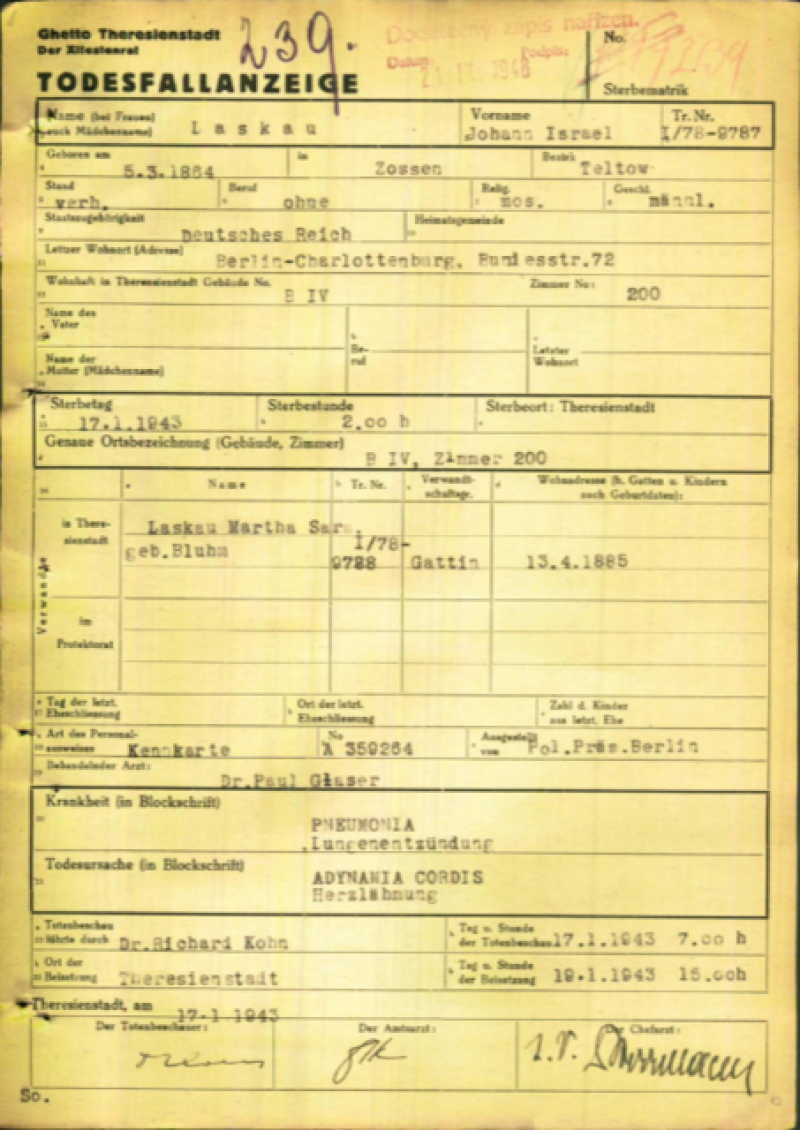 Ghetto Theresienstadt
Der Ältestenrat
239.
Dodatečný zápis nařízen.
Datum: Podpis:
1948
No.
TODESFALLANZEIGE
Sterbematrik
Name (bei Frauen auch Mädchenname) Laskau Vorname Johann Israel Tr. Nr. I/78-9787
Geboren am 5.3.1864 in Zossen Bezirk Teltow
Stand verh. Beruf ohne Relig. mos. Geschl. männl.
Staatszugehörigkeit Deutsches Reich Heimatsgemeinde
Letzter Wohnort (Adresse) Berlin-Charlottenburg, Bundesstr.72
Wohnhaft in Theresienstadt Gebäude No. B IV Zimmer No: 200
Name des Vater Be-ruf Letzter Wohnort
Name der Mutter (Mädchenname)
Sterbetag 17.1.1943 Sterbestunde 2.00 h Sterbeort: Theresienstadt
Genaue Ortsbezeichnung (Gebäude, Zimmer)
B IV, Zimmer 200
Name Tr. Nr. Verwandt-schaftsgr. Wohnadresse (b. Gatten u. Kindern auch Geburtdaten):
Verwandte
in There-sienstadt
Laskau Martha Sara
geb.Bluhm I/78-
9788 Gattin 13.4.1885
im Protektorat
Tag der letzt. Eheschliessung Ort der letzt. Eheschliessung Zahl d. Kinder aus letzt. Ehe
Art des Personal-ausweises Kennkarte No A 359264 Ausgestellt von Pol.Präs.Berlin
Behandelnder Arzt: Dr.Paul Glaser
Krankheit (in Blockschrift)
PNEUMONIA
Lungenentzündung
Todesursache (in Blockschrift)
ADYNAMIA CORDIS
Herzlähmung
Totenbeschau führte durch Dr.Richard Kohn Tag u. Stunde der Totenbeschau 17.1.1943 7.00 h
Ort der Beisetzung Theresienstadt Tag u. Stunde der Beisetzung 19.1.1943 15.00h
Theresienstadt, am 17.1.1943
Der Totenbeschauer: Der Amtsarzt: Der Chefarzt:
So.